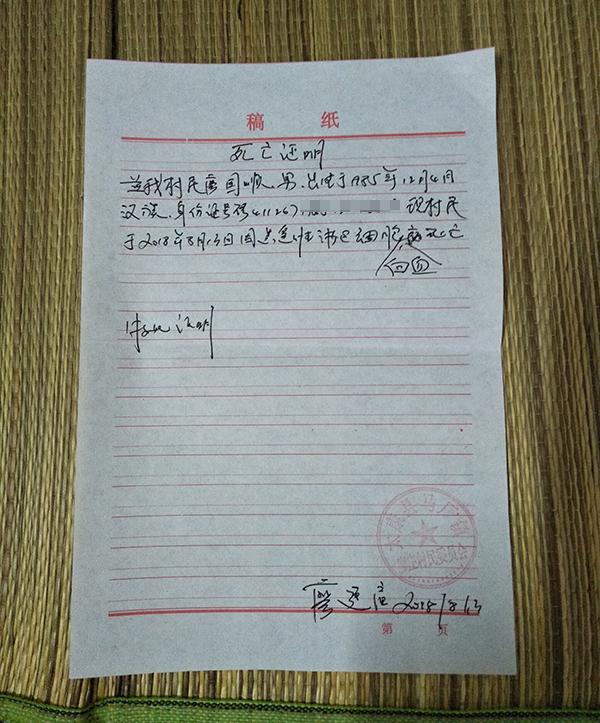 稿 纸
死亡证明
兹我村民 国顺,男,出生于1985年12月4日
汉族,身份证号码 41 现村民
于2018年8月13日因患急性淋巴细胞病死亡
白血
特此证明
太康县马厂镇 村民委员会
2018/8/13
第 页